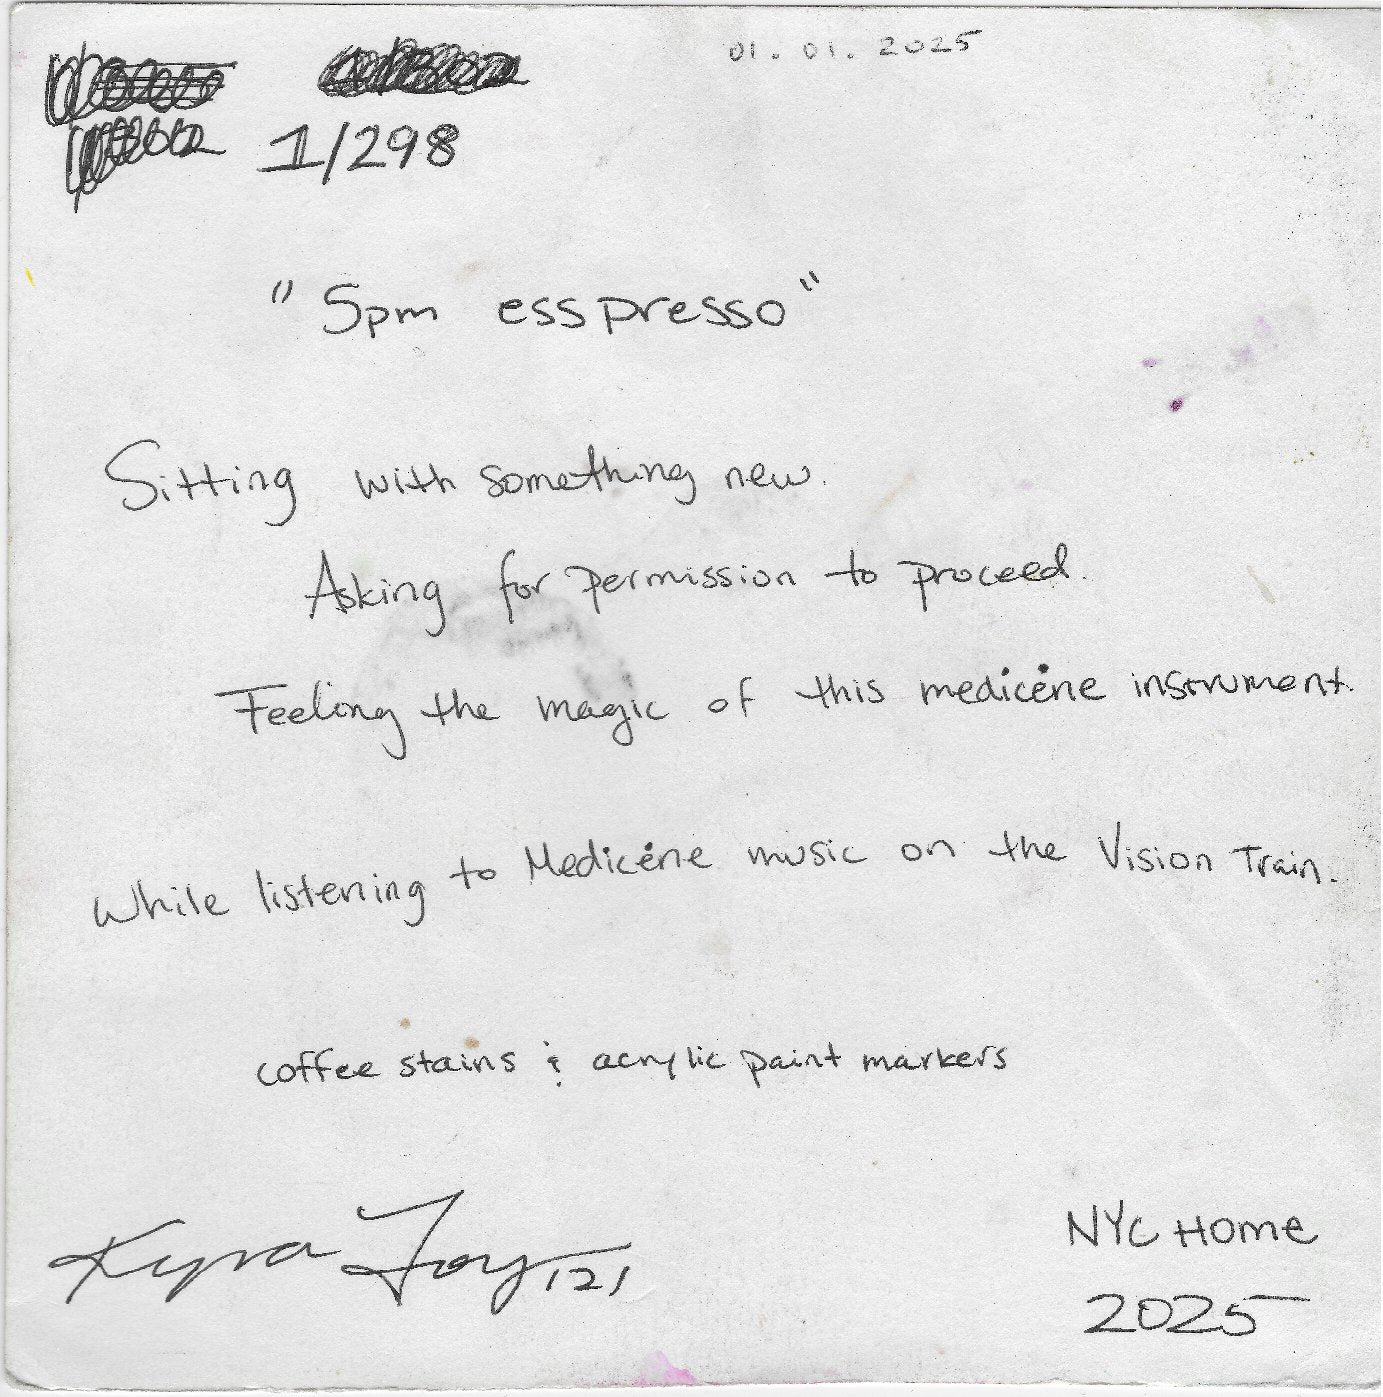 01.01.2025
1/298
"5pm esspresso"
Sitting with something new.
Asking for permission to proceed.
Feeling the magic of this medicine instrument.
While listening to Medicine music on the Vision Train.
coffee stains & acrylic paint markers
Kyra Joy 121
NYC Home
2025